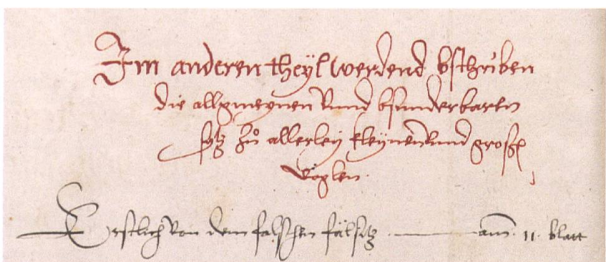 Im anderen theyl werdend bschriben
die allgmeynen vnnd bsunderbaren
sytz zů allerley kleynen vnnd großen
Voglen
Erstlich von dem falschen fälsitz am 11 blatt